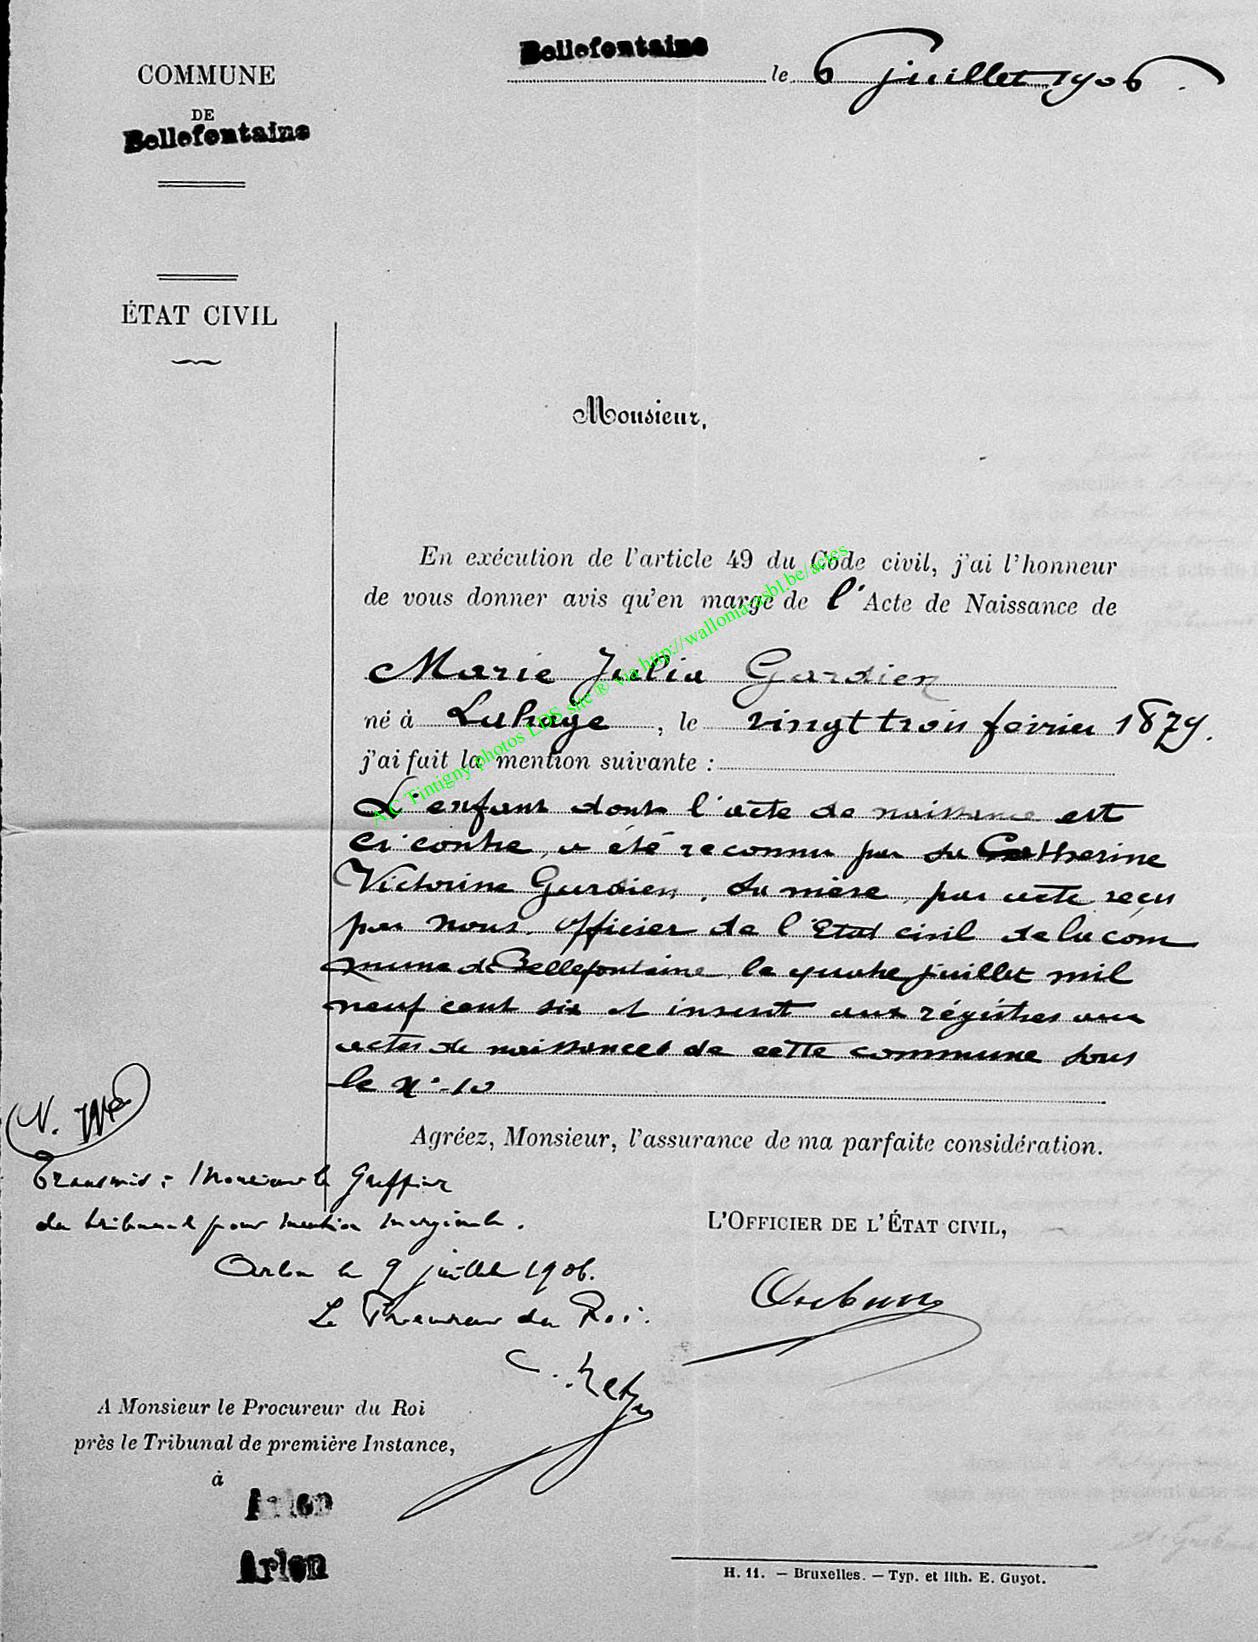 Bellefontaine le 6 juillet 1906.
COMMUNE
DE
Bellefontaine
ÉTAT CIVIL
Monsieur,
En exécution de l'article 49 du Code civil, j'ai l'honneur
de vous donner avis qu'en marge de l'Acte de Naissance de
Marie Julia Gardien
né à Lahage, le vingt trois février 1879.
j'ai fait la mention suivante :
L'enfant dont l'acte de naissance est
ci contre, a été reconnu par la Catherine
Victorine Gardien, sa mère, par acte reçu
par nous. officier de l'Etat civil de la com
mune de Bellefontaine le quatre juillet mil
neuf cent six et inscrit aux régistres aux
actes de naissances de cette commune sous
le N° 10
Agréez, Monsieur, l'assurance de ma parfaite considération.
Transmis à Monsieur le Greffier
du tribunal pour mention marginale.
Arlon le 9 juillet 1906.
Le Procureur du Roi.
L'OFFICIER DE L'ÉTAT CIVIL,
A Monsieur le Procureur du Roi
près le Tribunal de première Instance,
à
Arlon
Arlon
H. 11. — Bruxelles. — Typ. et lith. E. Guyot.
A/C Tintigny photos LDS site ® via http://wallonia-asbl.be/actes